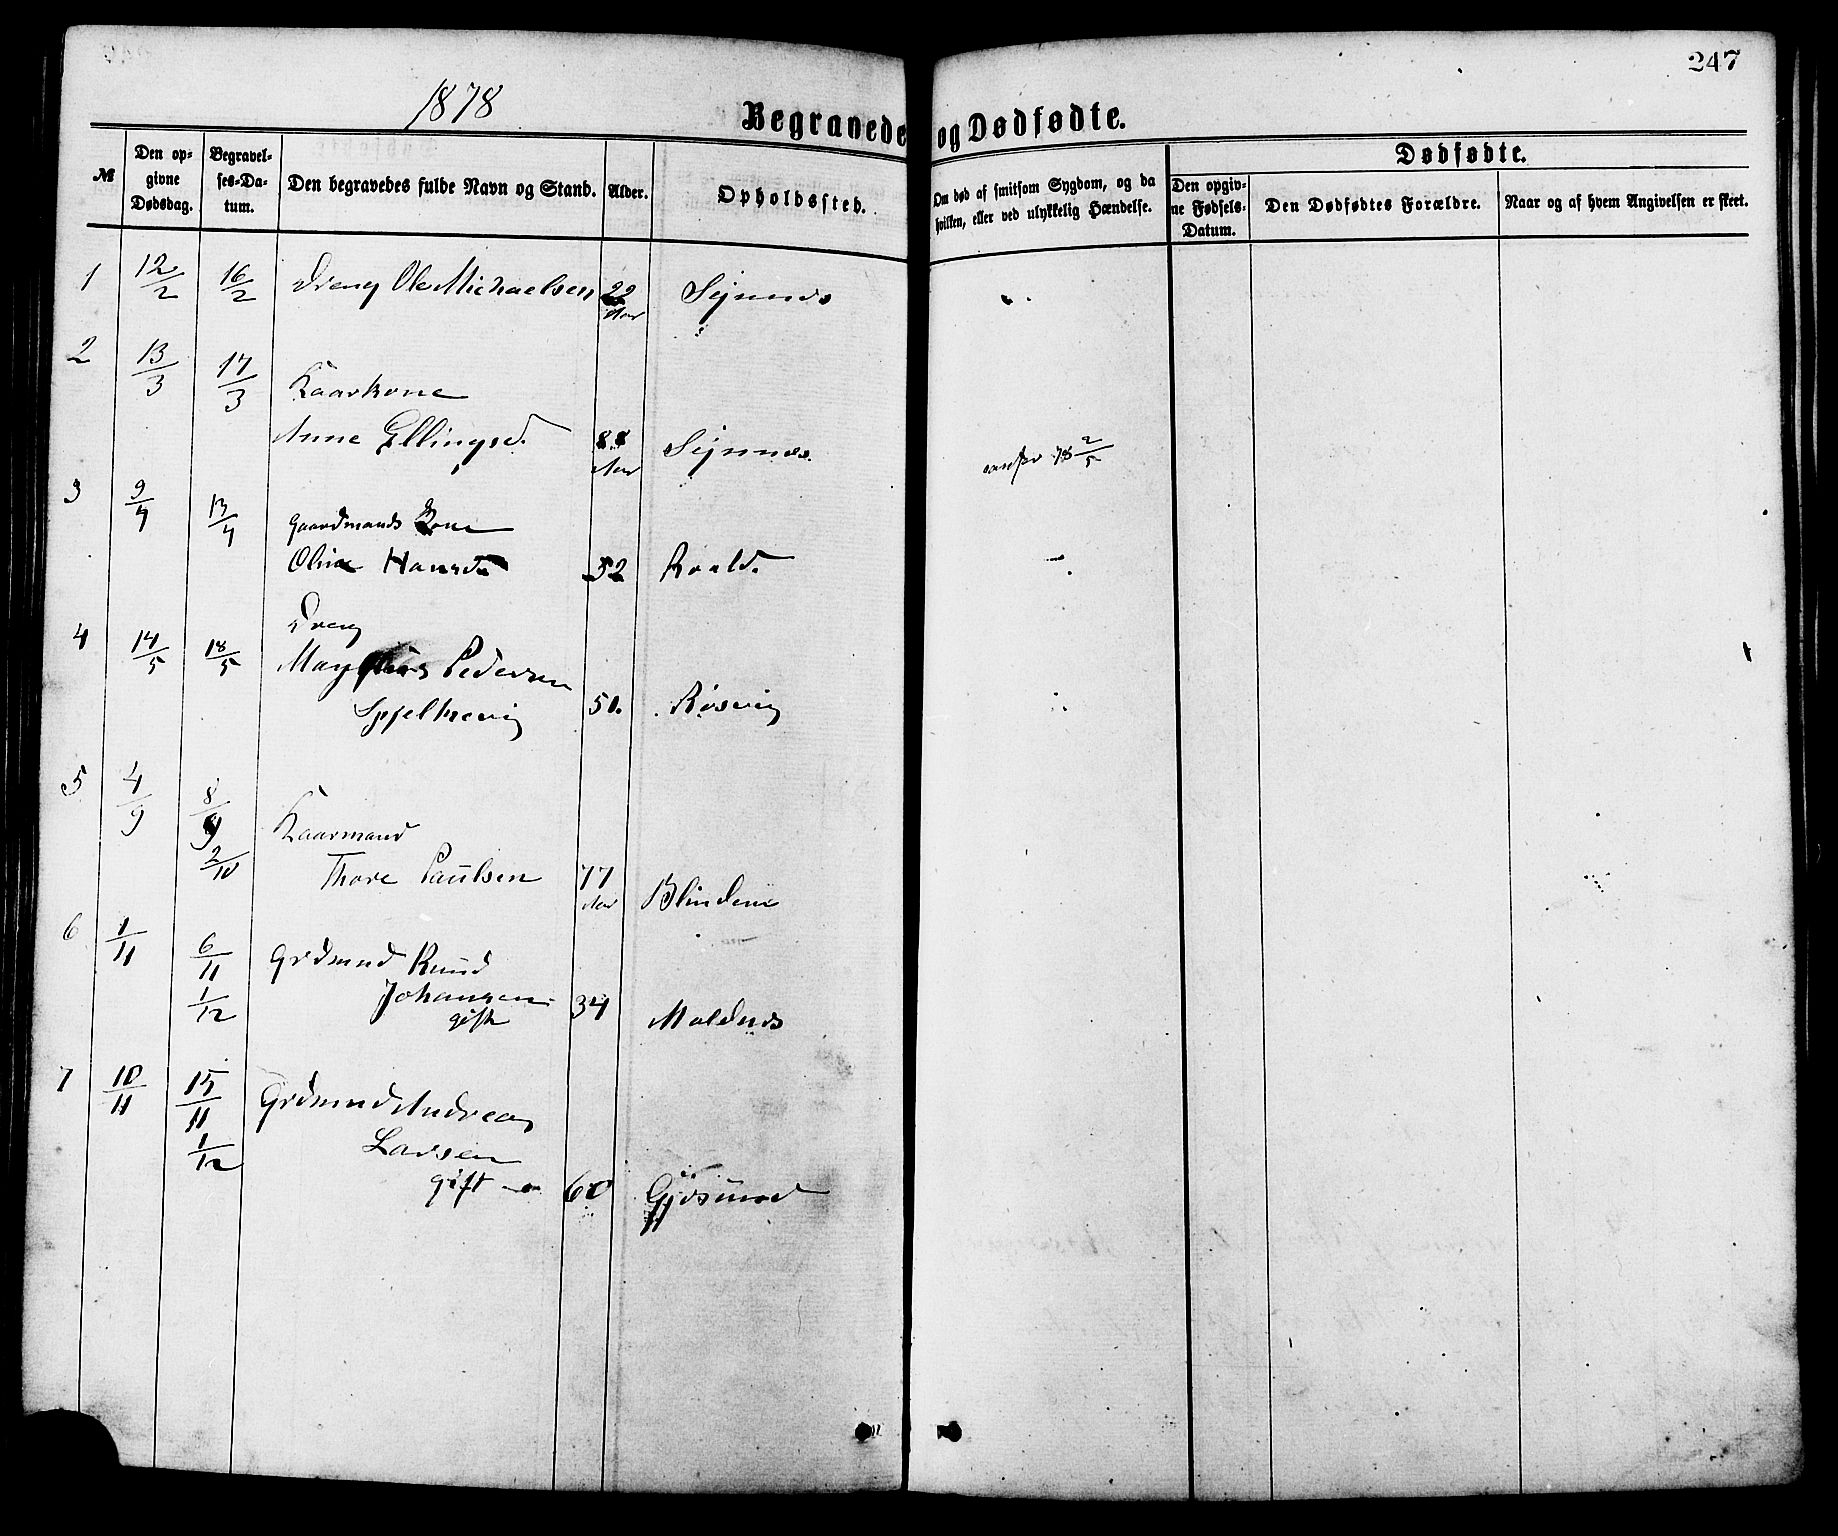 247
1878
Begravede og Dødfødte.
№
Den opgivne Dødsdag.
Begravelses-Datum.
Den begravedes fulde Navn og Stand.
Alder.
Opholdssted.
Om død af smitsom Sygdom, og da hvilken, eller ved ulykkelig Hændelse.
Dødfødte.
Den opgivne Fødsels-Datum.
Den Dødfødtes Forældre.
Naar og af hvem Angivelsen er skeet.
1 12/2 16/2 Dreng Ole Michaelsen 22 Sejnnæs
Aar
2 13/3 17/3 Kaarkone
Anne Ellingsd. 88 Sejnnæs. 78 2/5
Aar
3 9/4 13/4 Gaardmands Kone
Oline Hansd 52 Roald.
4 14/5 18/5 Dreng
Magnus Pedersen
Spjelkevig 50. Røsvig
5 4/9 8/9 Kaarmand
2/10 Thore Paulsen 77 Blindem
Aar
6 1/11 6/11 Grdmnd Knud
1/12 Johansen 34 Moldnæs
gift
7 10/11 15/11 Grdmnd Andreas
1/12 Larsen
gift 60 Gjøsund